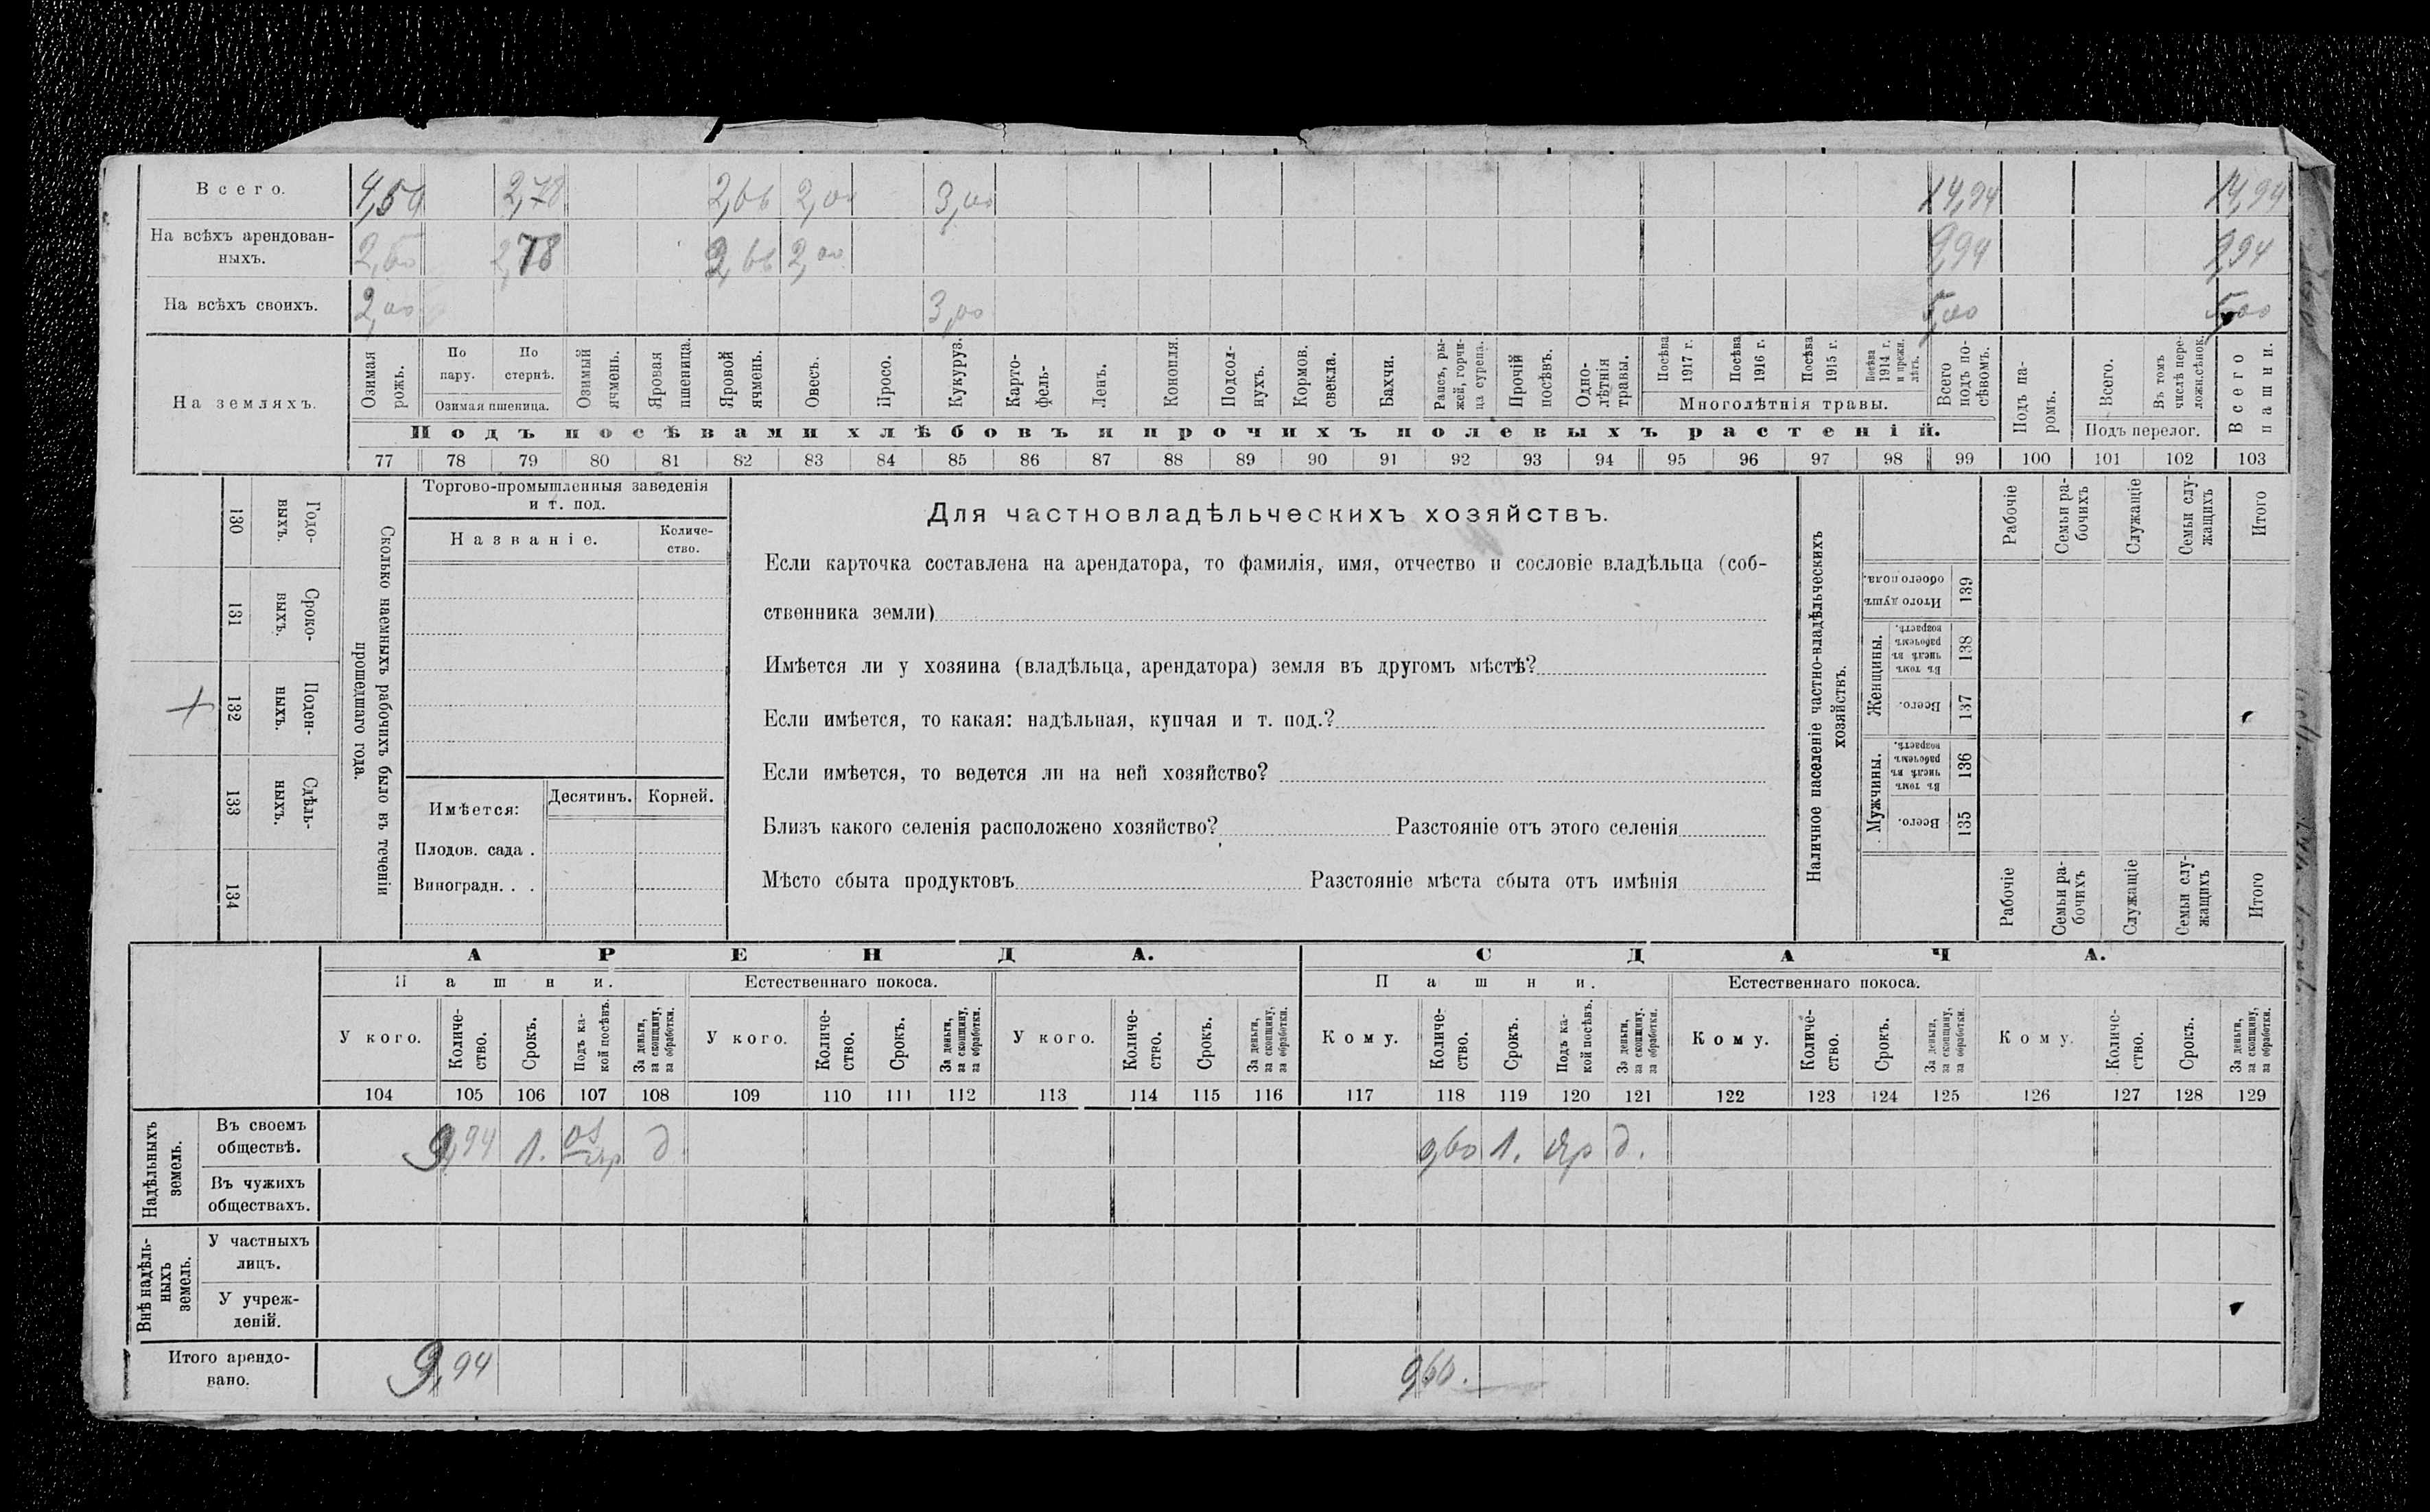 Всего. 4,50 2,78 2,66 2,00 3,00 14,94 14,94
На всѣхъ арендован-
ныхъ. 2,50 2,78 2,66 2,00 9,94 9,94
На всѣхъ своихъ. 2,00 3,00 5,00 5,00
На земляхъ.
Озимая рожь.
По пару.
По стернѣ.
Озимая пшеница.
Озимый ячмень.
Яровая пшеница.
Яровой ячмень.
Овесъ.
Просо.
Кукуруз.
Карто-
фель-
Ленъ.
Конопля.
Подсол-
нухъ.
Кормов.
свекла.
Бахчи.
Рапсъ, ры-
жей, горчи-
ца сурепа.
Прочій
посѣвъ.
Одно-
лѣтнія
травы.
Посѣва
1917 г.
Посѣва
1916 г.
Посѣва
1915 г.
Посѣва
1914 г.
и прежн.
лѣтъ.
Многолѣтнія травы.
Всего
подъ по-
сѣвомъ.
Подъ па-
ромъ.
Всего.
Въ томъ
числѣ пере-
ложн.сѣнок.
Подъ перелог.
Всего
пашни.
Подъ посѣвами хлѣбовъ и прочихъ полевыхъ растеній.
77 78 79 80 81 82 83 84 85 86 87 88 89 90 91 92 93 94 95 96 97 98 99 100 101 102 103
Сколько наемныхъ рабочихъ было въ теченіи
прошедшаго года.
Годо-
выхъ.
130
Сроко-
выхъ.
131
Поден-
ныхъ.
132
+
Сдѣль-
ныхъ.
133
134
Торгово-промышленныя заведенія
и т. под.
Названіе.
Количе-
ство.
Имѣется:
Десятинъ. Корней.
Плодов. сада .
Виноградн. . .
Для частновладѣльческихъ хозяйствъ.
Если карточка составлена на арендатора, то фамилія, имя, отчество и сословіе владѣльца (соб-
ственника земли)
Имѣется ли у хозяина (владѣльца, арендатора) земля въ другомъ мѣстѣ?
Если имѣется, то какая: надѣльная, купчая и т. под.?
Если имѣется, то ведется ли на ней хозяйство?
Близъ какого селенія расположено хозяйство? Разстояніе отъ этого селенія
Мѣсто сбыта продуктовъ Разстояніе мѣста сбыта отъ имѣнія
Наличное населеніе частно-владѣльческихъ
хозяйствъ.
Рабочіе
Семьи ра-
бочихъ
Служащіе
Семьи слу-
жащихъ
Итого
Итого душъ
обоего пола.
139
Женщины.
Въ томъ
числѣ въ
рабочемъ
возрастѣ.
138
Всего.
137
Мужчины.
Въ томъ
числѣ въ
рабочемъ
возрастѣ.
136
Всего.
135
Рабочіе
Семьи ра-
бочихъ
Служащіе
Семьи слу-
жащихъ
Итого
АРЕНДА. СДАЧА.
Пашни. Естественнаго покоса. Пашни. Естественнаго покоса.
У кого.
Количе-
ство.
Срокъ.
Подъ ка-
кой посѣвъ.
За деньги,
за скопщину,
за обработки.
У кого.
Количе-
ство.
Срокъ.
За деньги,
за скопщину,
за обработки.
У кого.
Количе-
ство.
Срокъ.
За деньги,
за скопщину,
за обработки.
Кому.
Количе-
ство.
Срокъ.
Подъ ка-
кой посѣвъ.
За деньги,
за скопщину,
за обработки.
Кому.
Количе-
ство.
Срокъ.
За деньги,
за скопщину,
за обработки.
Кому.
Количе-
ство.
Срокъ.
За деньги,
за скопщину,
за обработки.
104 105 106 107 108 109 110 111 112 113 114 115 116 117 118 119 120 121 122 123 124 125 126 127 128 129
Надѣльныхъ
земель.
Въ своемъ
обществѣ. 9,94 1. оз яр д 0,60 1. яр д.
Въ чужихъ
обществахъ.
Внѣ надѣль-
ныхъ
земель.
У частныхъ
лицъ.
У учреж-
деній.
Итого арендо-
вано. 9,94 0,60.